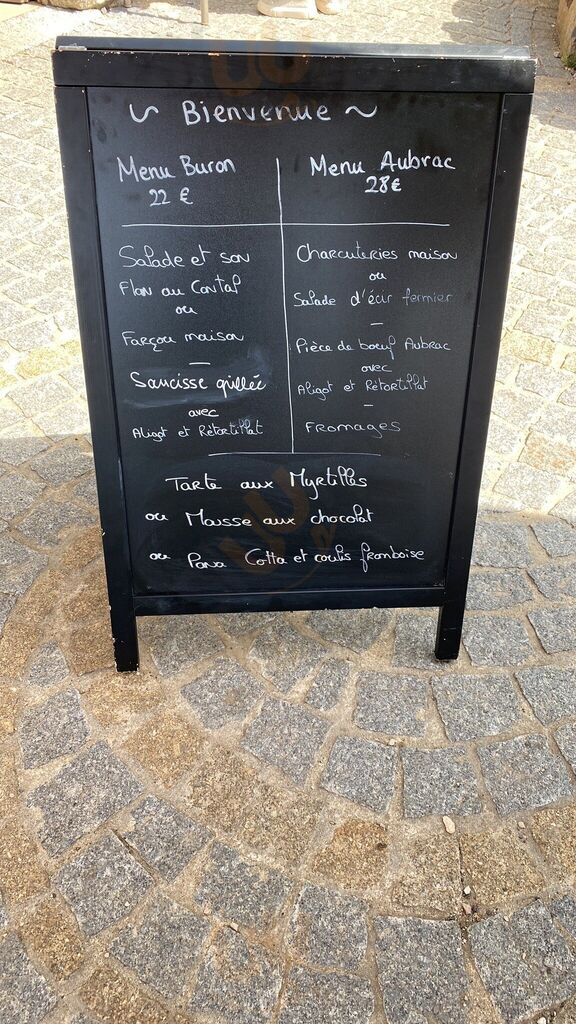 ~ Bienvenue ~
Menu Buron
22 €
Salade et son
Flan au Cantal
ou
Farçou maison
—
Saucisse grillée
avec
Aligot et Rétortillat
Menu Aubrac
28€
Charcuteries maison
ou
Salade d'écir fermier
—
Pièce de boeuf Aubrac
avec
Aligot et Rétortillat
-
Fromages
Tarte aux Myrtilles
ou Mousse aux chocolat
ou Pana Cotta et coulis framboise